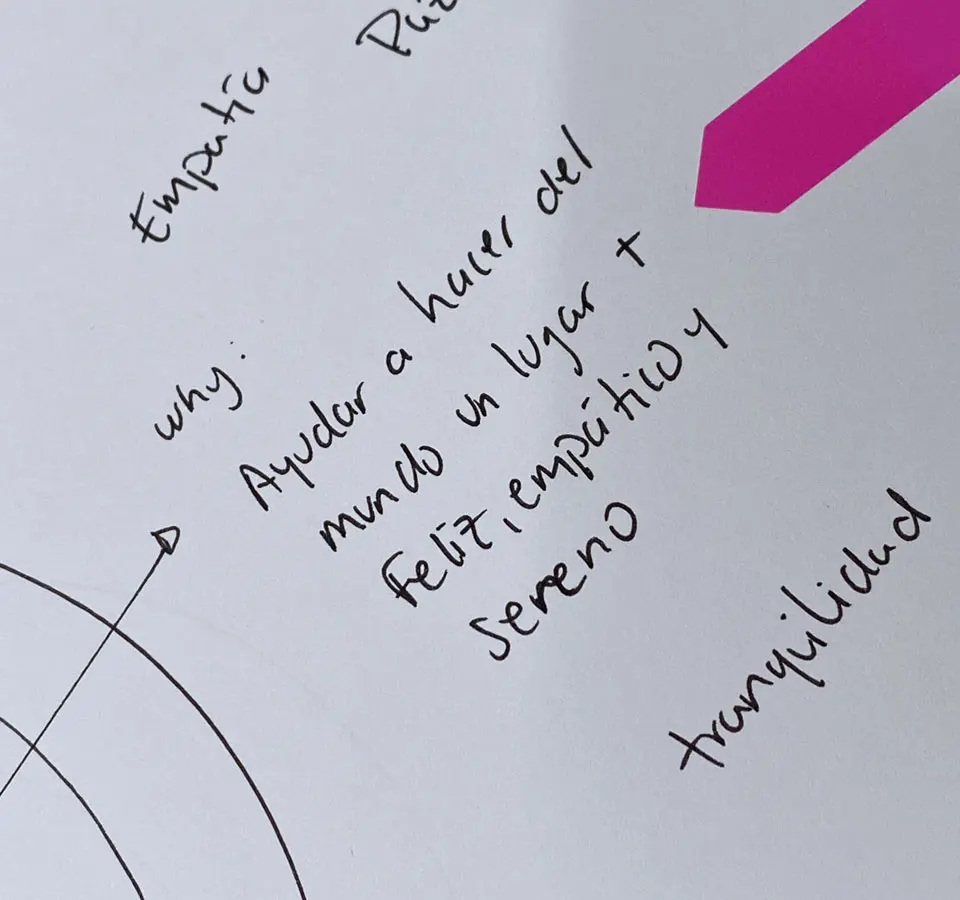 Empatía
why:
Ayudar a hacer del
mundo un lugar +
Feliz, empático y
sereno
tranquilidad